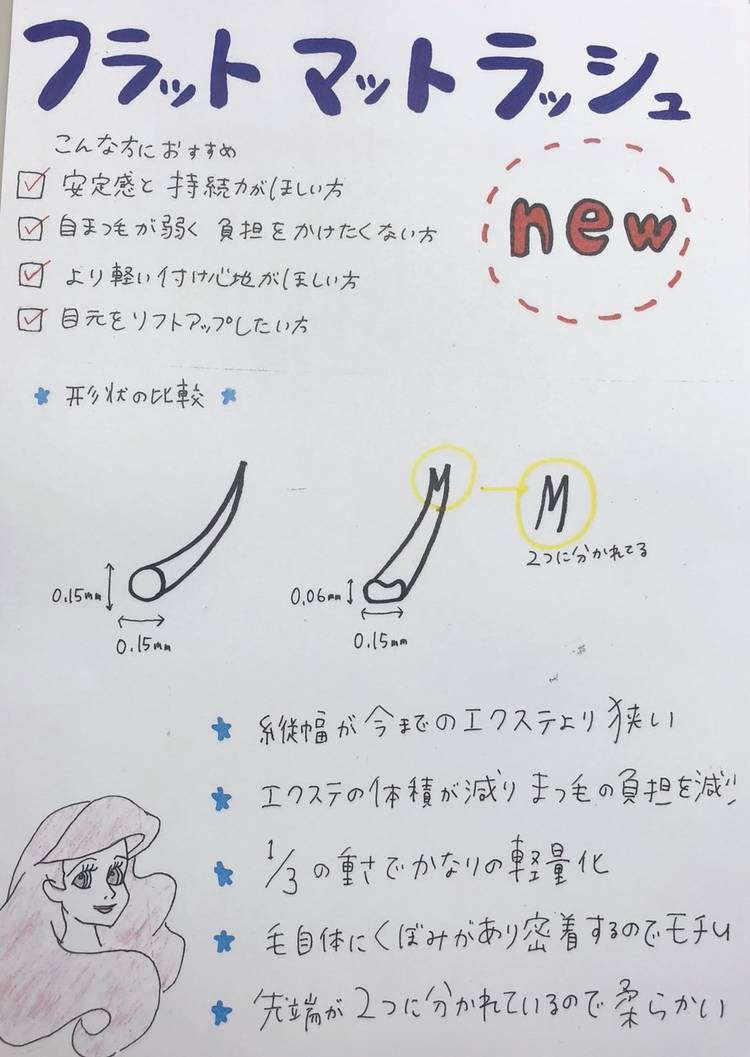 フラット マット ラッシュ
こんな方におすすめ
安定感と 持続力がほしい方
new
自まつ毛が弱く 負担をかけたくない方
より軽い付け心地がほしい方
目元をリフトアップしたい方
形状の比較
M
2つに分かれてる
0.15mm
0.15mm
0.06mm
0.15mm
縦幅が今までのエクステより狭い
エクステの体積が減り まつ毛の負担を減!!
1/3の重さでかなりの軽量化
毛自体にくぼみがあり密着するのでモチU
先端が2つに分かれているので柔らかい